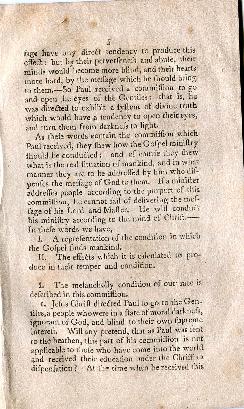 5
sage have any direct tendency to produce this
effect: but by their perverseness and abuse, their
minds would become more blind, and their hearts
more hard, by the message which he should bring
to them.—So Paul received a commission to go
and open the eyes of the Gentiles: that is, he
was directed to exhibit a system of divine truth
which would have a tendency to open their eyes,
and turn them from darkness to light.
As these words contain the commission which
Paul received, they shew how the Gospel ministry
should be conducted: and of course they shew
what is the real situation of mankind, and in what
manner they are to be addressed by him who dis-
penses the message of God to them. If a minister
addresses people according to the purport of this
commission, he cannot fail of delivering the mes-
sage of his Lord and Master. He will conduct
his ministry according to the mind of Christ.—
In these words we have,
I. A representation of the condition in which
the Gospel finds mankind.
II. The effects which it is calculated to pro-
duce in their temper and condition.
I. The melancholy condition of our race is
described in this commission.
1. Jesus Christ directed Paul to go to the Gen-
tiles, a people who were in a state of moral darkness,
ignorant of God, and blind to their own supreme
interest. Will any pretend, that as Paul was sent
to the heathen, this part of his commission is not
applicable to those who have come into the world
and received their education under the Christian
dispensation? At the time when he received this